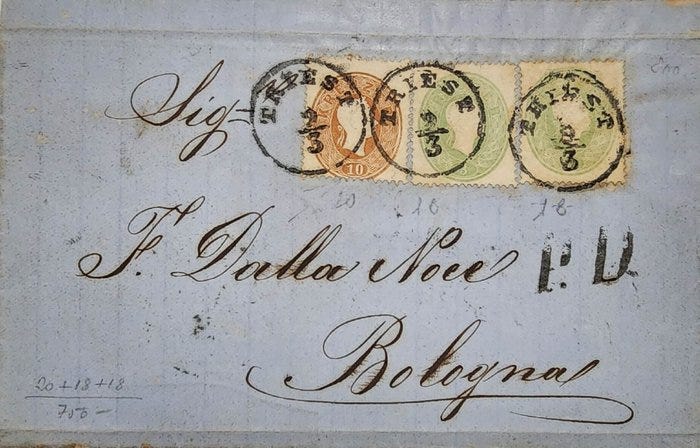 TRIEST
2/3
TRIEST
2/3
TRIEST
2/3
10
Sig
20 18 18
F. Dalla Noce
P.D.
Bologna
20+18+18
750 -